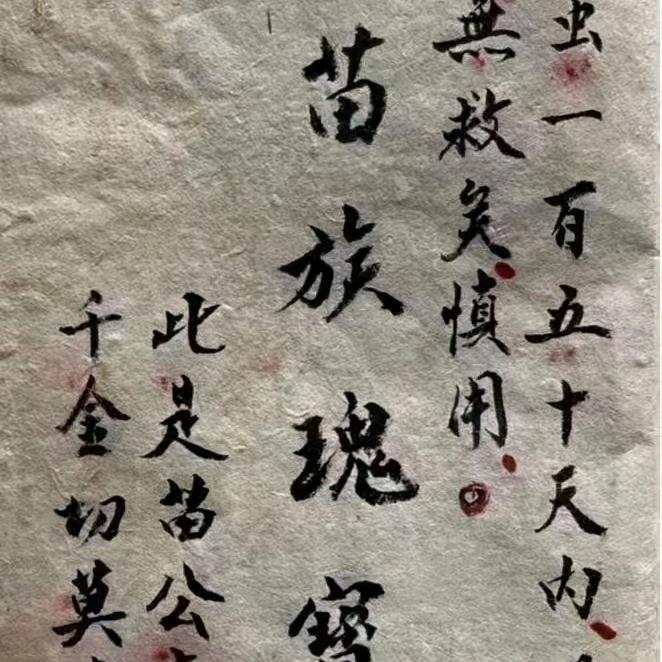 虫一百五十天内
無救矣慎用
苗族瑰寶
此是苗公
千金切莫